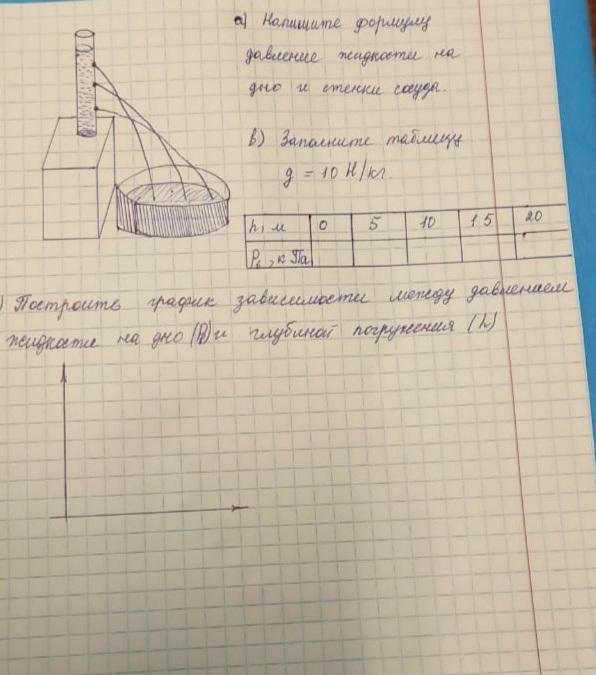 а) Напишите формулу
давление жидкости на
дно и стенки сосуда.
в) Заполните таблицу
g = 10 Н/кг.
h, м 0 5 10 15 20
, кПа
) Постройте график зависимости между давлением
жидкости на дно (P) и глубиной погружения (h)